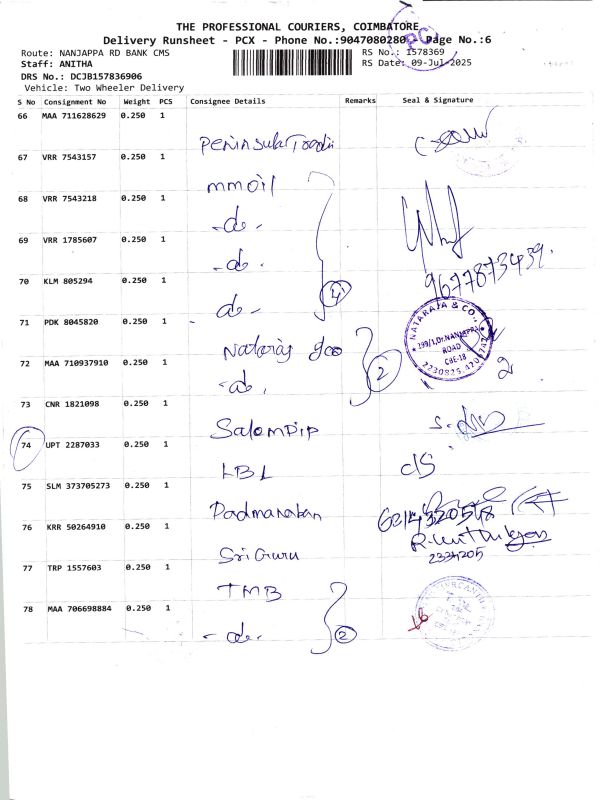 THE PROFESSIONAL COURIERS, COIMBATORE
Delivery Runsheet - PCX - Phone No.:9047080280 Page No.:6
Route: NANJAPPA RD BANK CMS RS No.: 1578369
Staff: ANITHA RS Date: 09-Jul-2025
DRS No.: DCJB157836906
Vehicle: Two Wheeler Delivery
S No Consignment No Weight PCS Consignee Details Remarks Seal & Signature
66 MAA 711628629 0.250 1
Peninsular
67 VRR 7543157 0.250 1
mmoil
68 VRR 7543218 0.250 1
-do-
69 VRR 1785607 0.250 1
-do-
9677873439
70 KLM 805294 0.250 1
do- 4
71 PDK 8045820 0.250 1
NATARAJA & CO.,
299/1, Dr.NANJAPPA
ROAD
CBE-18
Nataraj
72 MAA 710937910 0.250 1
-do, 2 2
73 CNR 1821098 0.250 1
Salempip
74 UPT 2287033 0.250 1
LBL
75 SLM 373705273 0.250 1
Padmanaban
76 KRR 50264910 0.250 1
Sri Guru
2334205
77 TRP 1557603 0.250 1
TMB
78 MAA 706698884 0.250 1
-do- 2